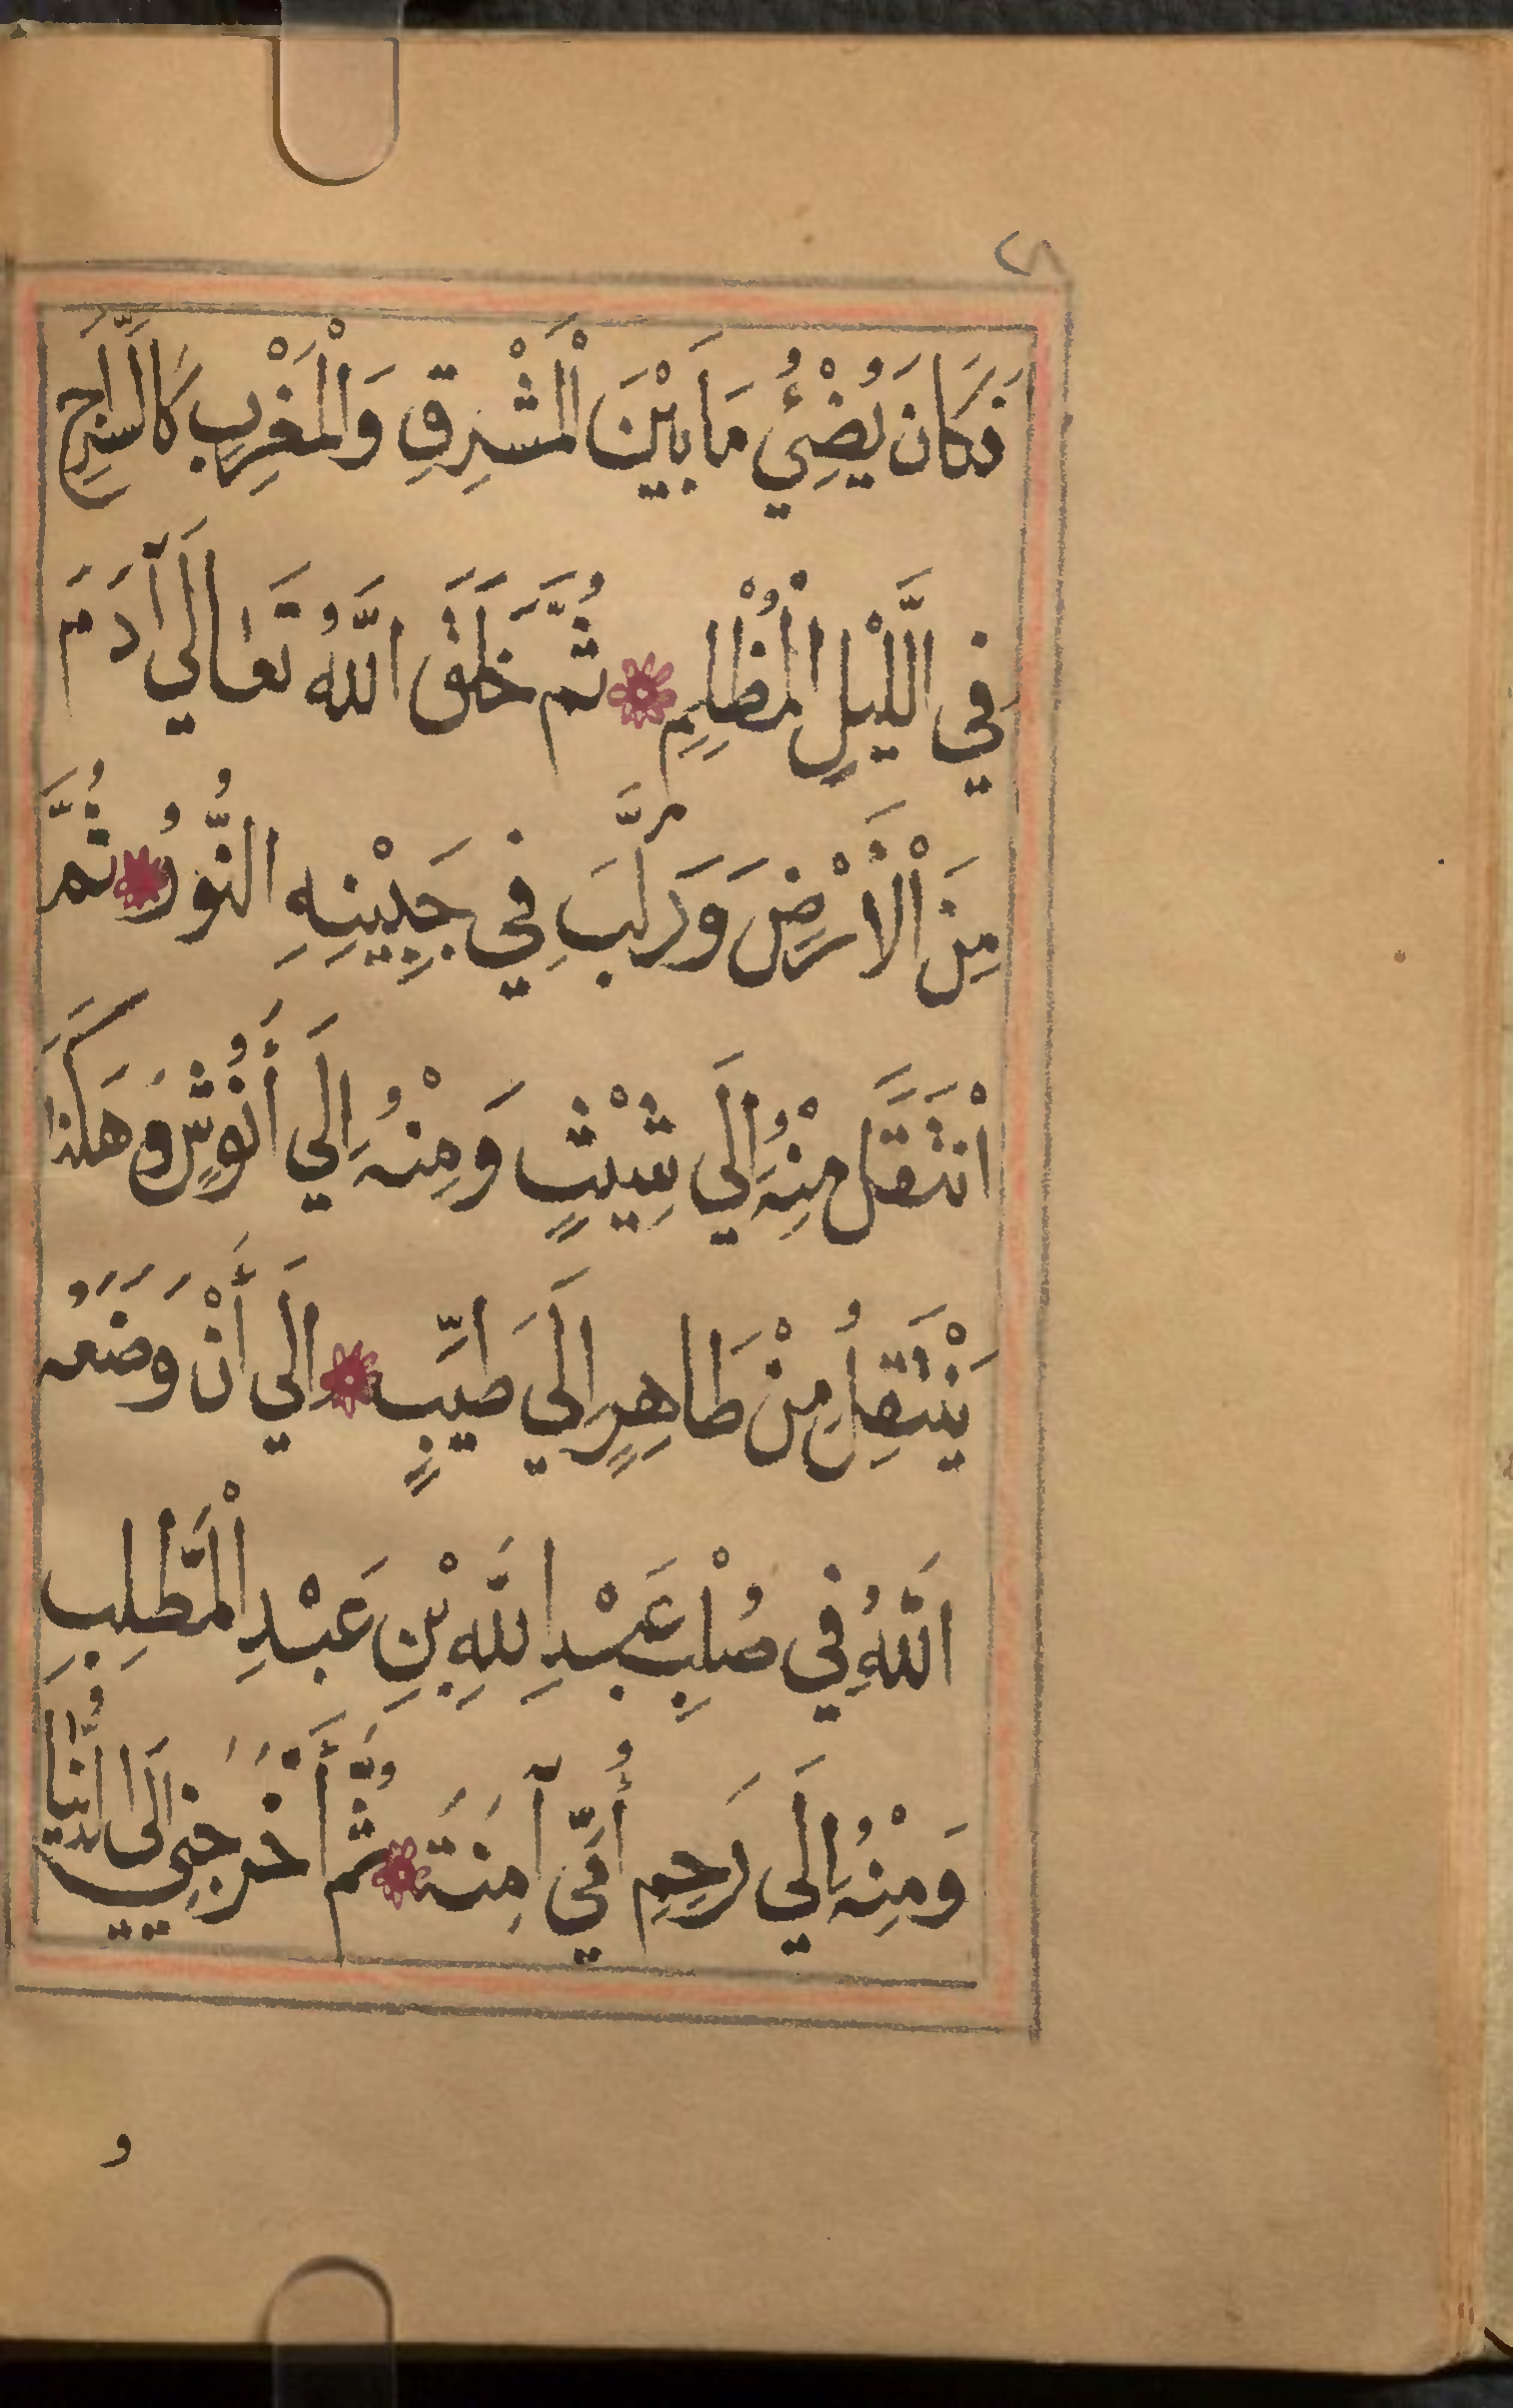 ٢٨
فَكَانَ يُضْئُ مَا بَيْنَ الْمَشْرِقِ وَالْمَغْرِبِ كَالسِّرَاجِ
فِي الَّليْلِ الْمُظْلِمِ ثُمَّ خَلَقَ اللّٰهُ تَعَالَي آدَمَ
مِنَ الْأَرْضِ وَرَكَّبَ فِي جَبِيْنِهِ النُّورُ ثُمَّ
انْتَقَلَ مِنْهُ اِلَي شِيْثٍ وَمِنْهُ اِلَي أَنُوْشٍ وَهَكَذَا
يَنْتَقِلُ مِنْ طَاهِرٍ اِلَي طَيِّبٍ اِلَي أَنْ وَضَعَهُ
اللّٰهُ فِي صُلْبِ عَبْدِ اللّٰهِ بْنِ عَبْدِ الْمُطَّلِبِ
وَمِنْهُ اِلَي رَحِمِ أُمِّي آمِنَةَ ثُمَّ أَخْرَجَنِي اِلَى الدُّنْيَا
و